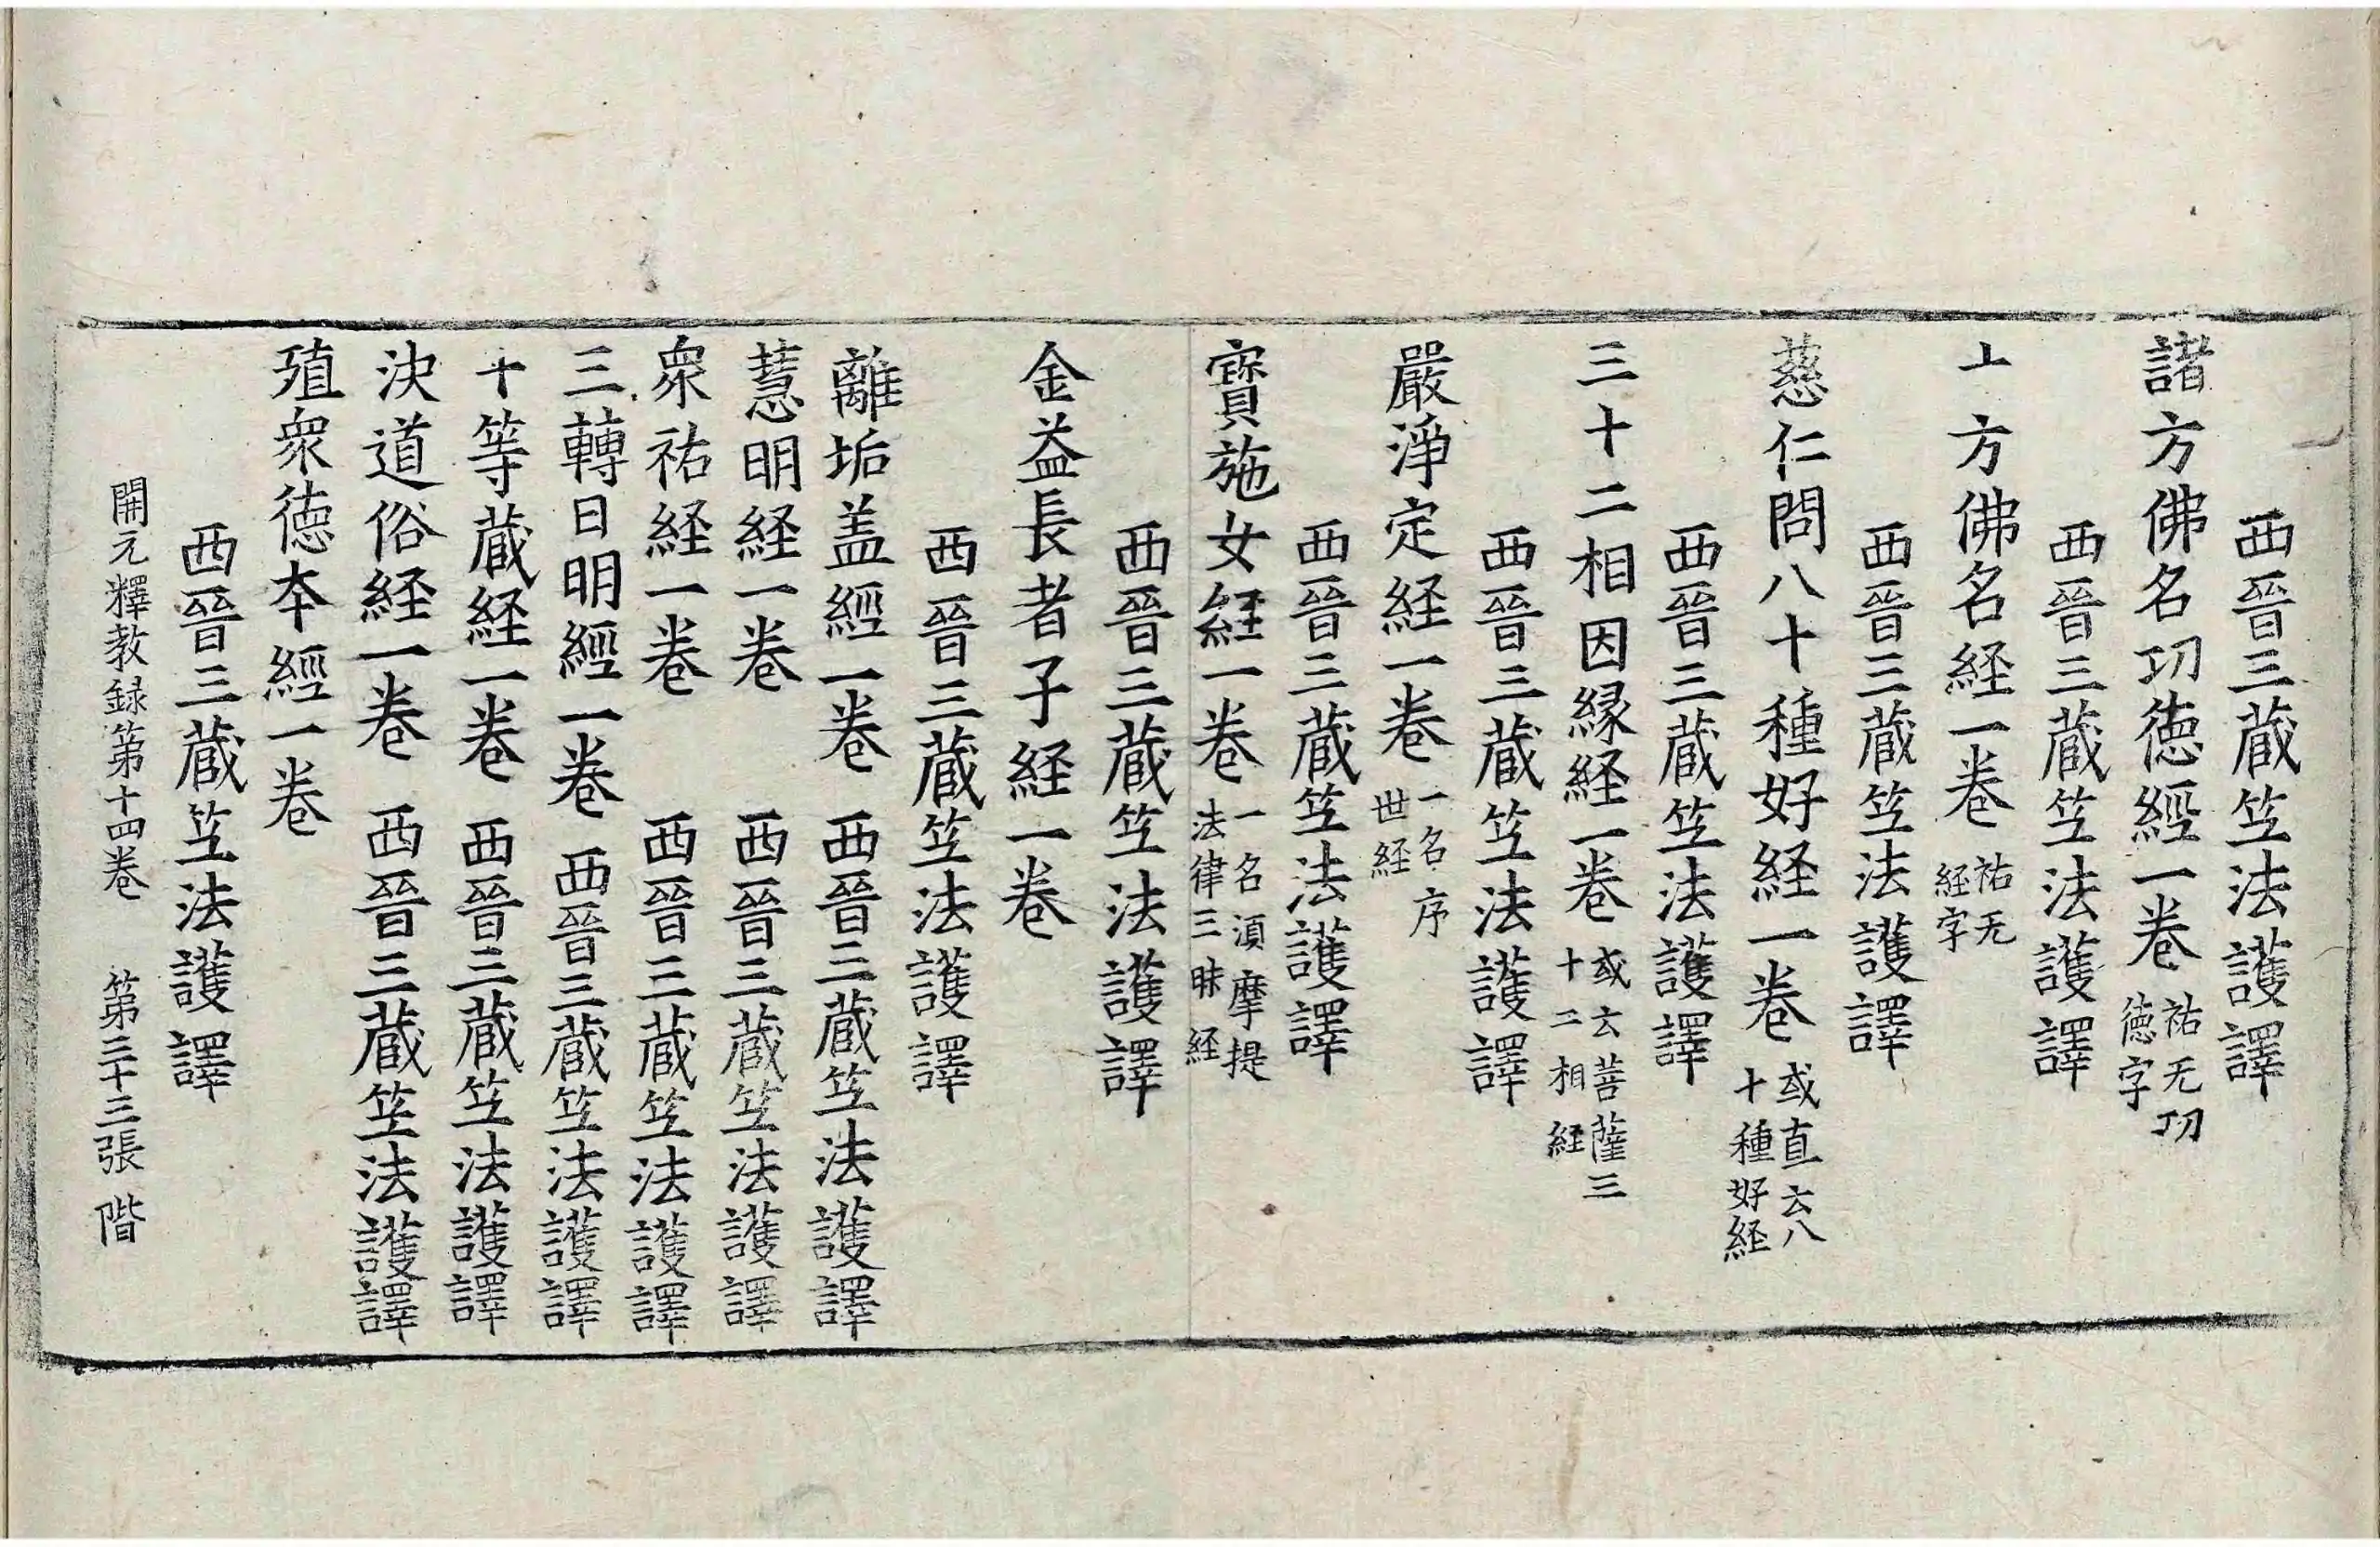 西晉三蔵笁法護譯
諸方佛名功徳經一卷 祐无功徳字
西晉三蔵笁法護譯
十方佛名経一卷 祐无経字
西晉三蔵笁法護譯
慈仁問八十種好経一卷 或直云八十種好経
西晉三蔵笁法護譯
三十二相因縁経一卷 或云菩薩三十二相経
西晉三蔵笁法護譯
嚴淨定経一卷 一名序世経
西晉三蔵笁法護譯
寳施女経一卷 一名湏摩提法律三昧経
西晉三蔵笁法護譯
金益長者子経一卷
西晉三蔵笁法護譯
離垢盖經一卷 西晉三蔵笁法護譯
慧明経一卷 西晉三蔵笁法護譯
衆祐経一卷 西晉三蔵笁法護譯
三轉日明經一卷 西晉三蔵笁法護譯
十等蔵経一卷 西晉三蔵笁法護譯
決道俗経一卷 西晉三蔵笁法護譯
殖衆徳夲經一卷
西晉三蔵笁法護譯
開元釋教録第十四卷 第三十三張 階